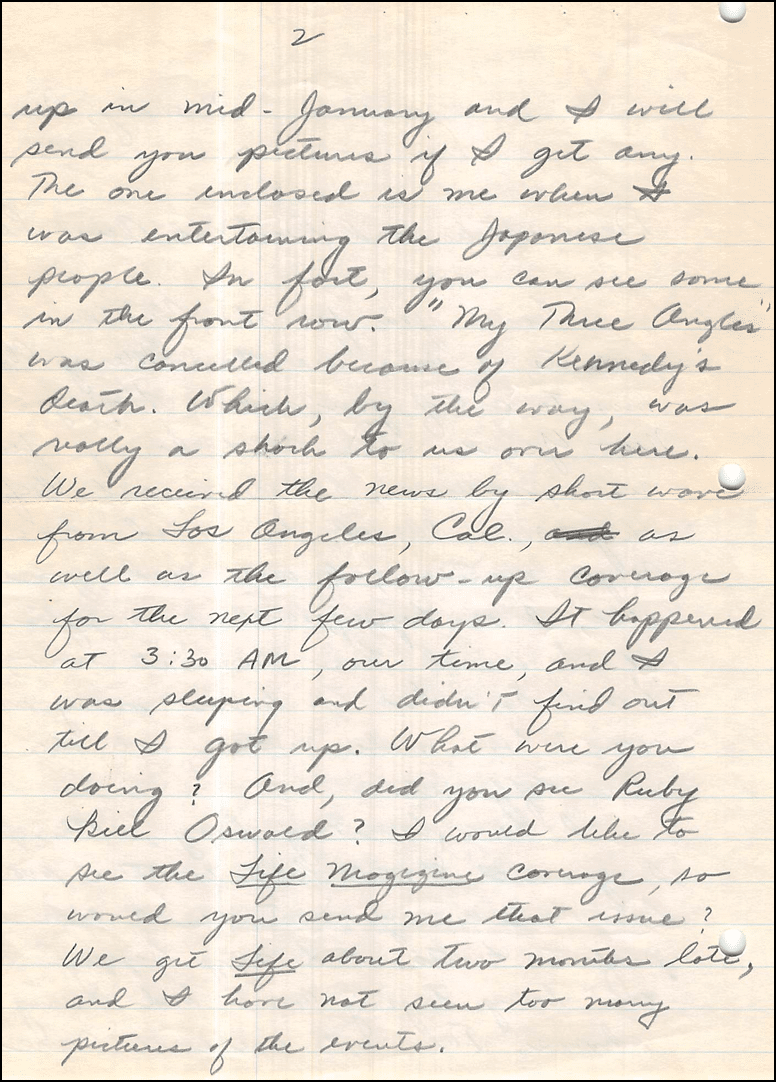 2
up in mid-January and I will
send you pictures if I get any.
The one inclosed is me when I
was entertaining the Japanese
people. In fact, you can see some
in the front row. "My Three Angles"
was cancelled because of Kennedy's
death. Which, by the way, was
really a shock to us over here.
We received the news by short wave
from Los Angeles, Cal., and as
well as the follow-up coverage
for the next few days. It happened
at 3:30 AM, our time, and I
was sleeping and didn't find out
till I got up. What were you
doing? And, did you see Ruby
kill Oswald? I would like to
see the Life Magizine coverage, so
would you send me that issue?
We get Life about two months late,
and I have not seen too many
pictures of the events.